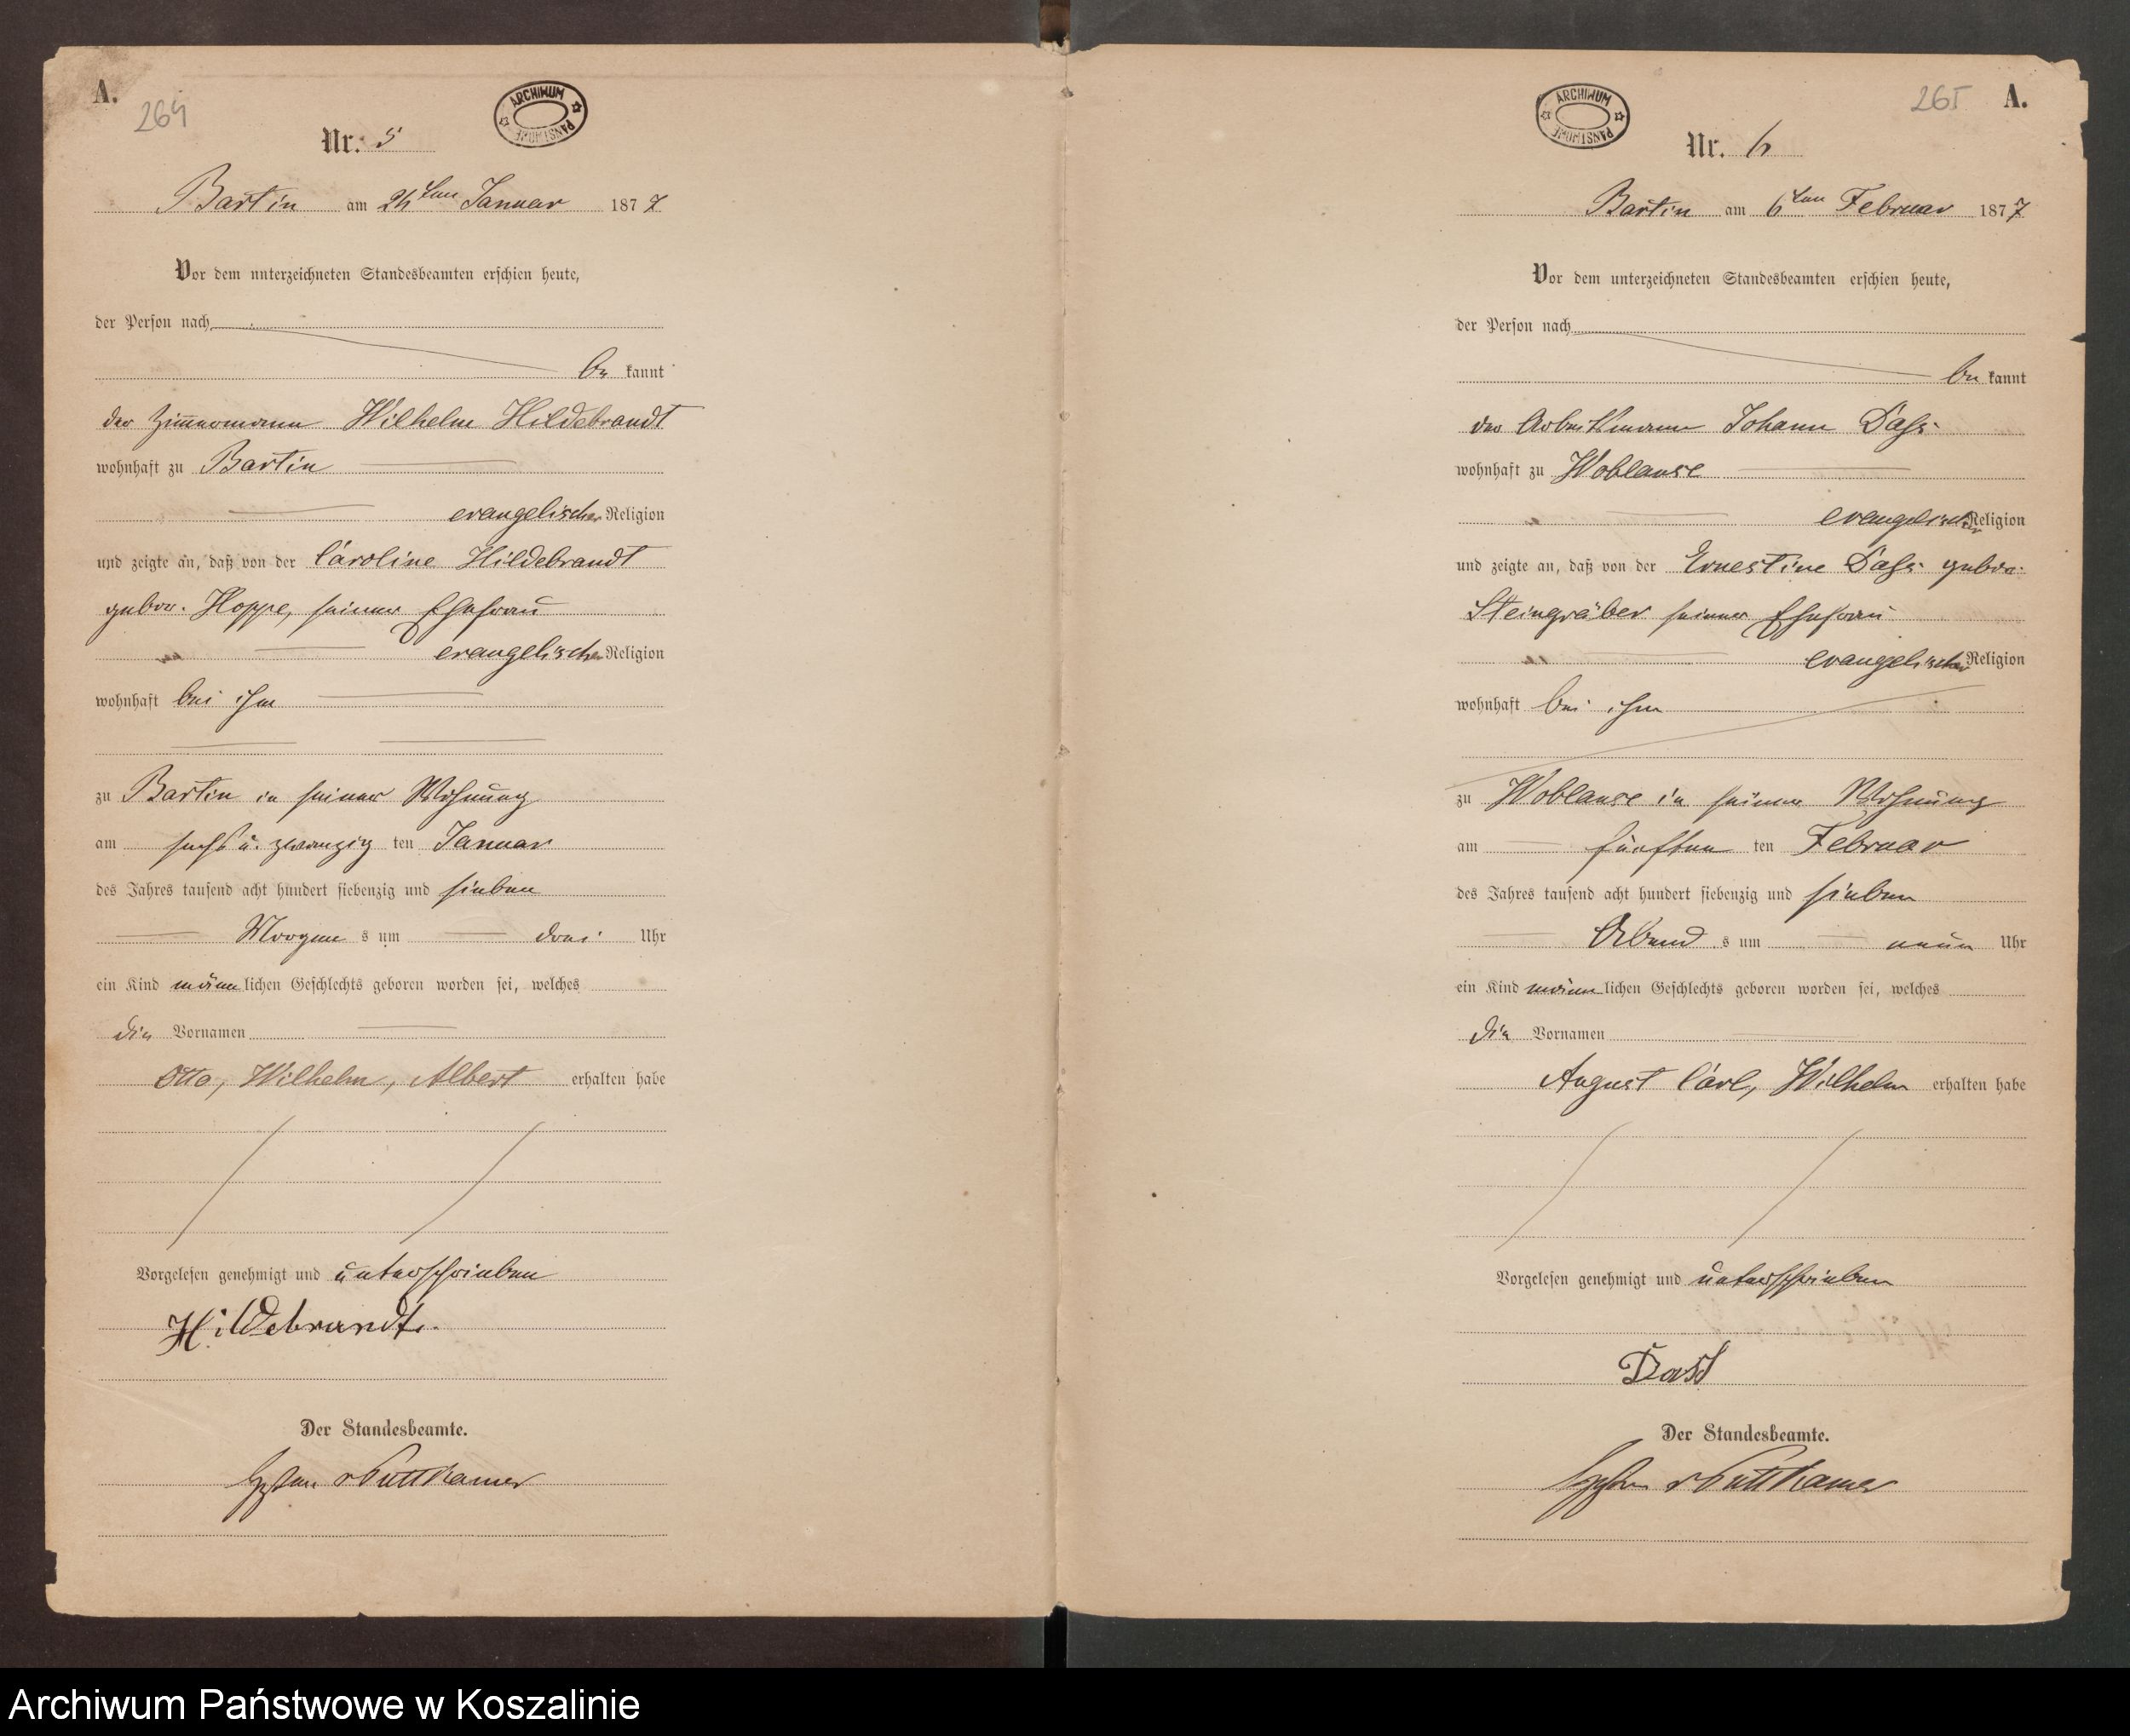 A.
264
ARCHIWUM PAŃSTWOWE
Nr. 5
Bartin am 26ten Januar 1877
Vor dem unterzeichneten Standesbeamten erschien heute,
der Person nach
be kannt
der Zimmermann Wilhelm Hildebrandt
wohnhaft zu Bartin
evangelischer Religion
und zeigte an, daß von der Caroline Hildebrandt
gebor. Hoppe, seiner Ehefrau
evangelischer Religion
wohnhaft bei ihm
zu Bartin in seiner Wohnung
am sechs u. zwanzig ten Januar
des Jahres tausend acht hundert siebenzig und sieben
Morgen s um drei Uhr
ein Kind männ lichen Geschlechts geboren worden sei, welches
die Vornamen
Otto, Wilhelm, Albert erhalten habe
Vorgelesen genehmigt und unterschrieben
Hildebrandt.
Der Standesbeamte.
v Puttkamer
265 A.
ARCHIWUM PAŃSTWOWE
Nr. 6
Bartin am 6ten Februar 1877
Vor dem unterzeichneten Standesbeamten erschien heute,
der Person nach
be kannt
der Arbeitsmann Johann Dass
wohnhaft zu Woblanse
evangelischer Religion
und zeigte an, daß von der Ernestine Dass gebor.
Steingräber seiner Ehefrau
evangelischer Religion
wohnhaft bei ihm
zu Woblanse in seiner Wohnung
am fünften ten Februar
des Jahres tausend acht hundert siebenzig und sieben
Abend s um neun Uhr
ein Kind männ lichen Geschlechts geboren worden sei, welches
die Vornamen
August Carl, Wilhelm erhalten habe
Vorgelesen genehmigt und unterschrieben
Dass
Der Standesbeamte.
v Puttkamer
Archiwum Państwowe w Koszalinie